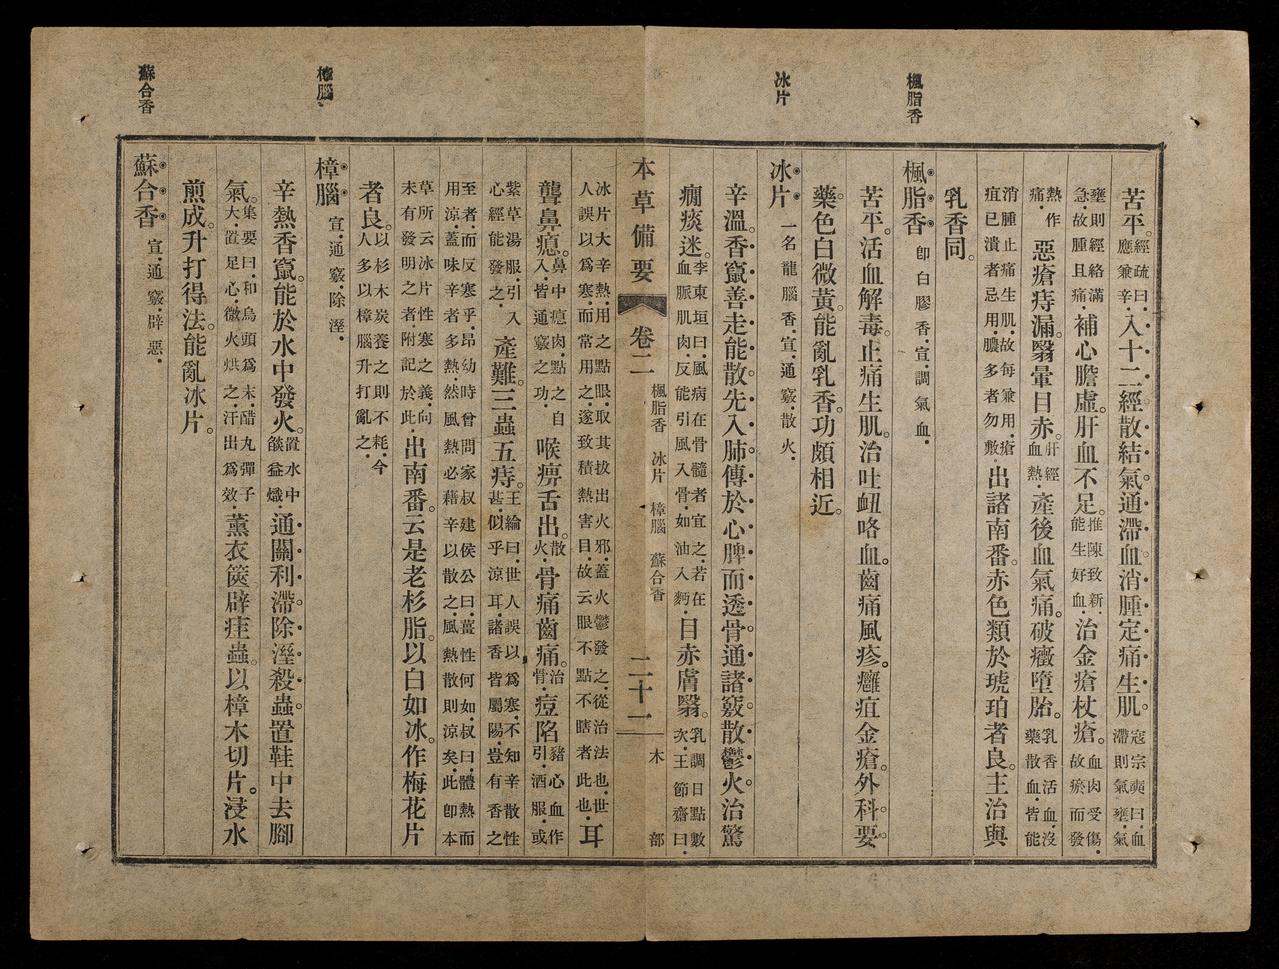 楓脂香
冰片
樟腦
蘇合香
苦平。經疏曰應兼辛入十二經散結氣。通滯血消腫定痛生肌。寇宗奭曰血滯則氣壅氣
壅則經絡滿急故腫且痛補心膽虛。肝血不足。推陳致新能生好血治金瘡杖瘡。血肉受傷故瘀而發
熱作痛惡瘡痔漏。翳暈目赤。肝經血熱產後血氣痛。破癥墮胎。乳香活血沒藥散血皆能
消腫止痛生肌故每兼用瘡疽已潰者忌用膿多者勿敷出諸南番。赤色類於琥珀者良。主治與
乳香同。
楓脂香 卽白膠香宣調氣血
苦平。活血解毒。止痛生肌。治吐衄咯血。齒痛風疹。癰疽金瘡。外科要
藥。色白微黃。能亂乳香。功頗相近。
冰片 一名龍腦香宣通竅散火
辛溫。香竄善走能散先入肺。傳於心脾而透骨通諸竅散鬱火。治驚
癇痰迷。李東垣曰風病在骨髓者宜之若在血脈肌肉反能引風入骨如油入麪目赤膚翳。乳調日點數次王節齋曰
本草備要 卷二 楓脂香 冰片 樟腦 蘇合香 二十一 木部
冰片大辛熱用之點眼取其拔出火邪蓋火鬱發之從治法也世人誤以爲寒而常用之遂致積熱害目故云眼不點不瞎者此也耳
聾鼻瘜。鼻中瘜肉點之自入皆通竅之功喉痹舌出。散火骨痛齒痛。治骨痘陷豬心血作引酒服或
紫草湯服引入心經能發之產難三蟲五痔。王綸曰世人誤以爲寒不知辛散性甚似乎涼耳諸香皆屬陽豈有香之
至者而反寒乎昂幼時曾問家叔建侯公曰薑性何如叔曰體熱而用涼蓋味辛者多熱然風熱必藉辛以散之風熱散則涼矣此卽本
草所云冰片性寒之義向未有發明之者附記於此出南番。云是老杉脂。以白如冰。作梅花片
者良。以杉木炭養之則不耗今人多以樟腦升打亂之
樟腦 宣通竅除溼
辛熱香竄。能於水中發火。置水中燄益熾通關利滯。除溼殺蟲。置鞋中去腳
氣。集要曰和烏頭爲末醋丸彈子大置足心微火烘之汗出爲效薰衣篋辟疰蟲。以樟木切片。浸水
煎成。升打得法。能亂冰片。
蘇合香 宣通竅辟惡